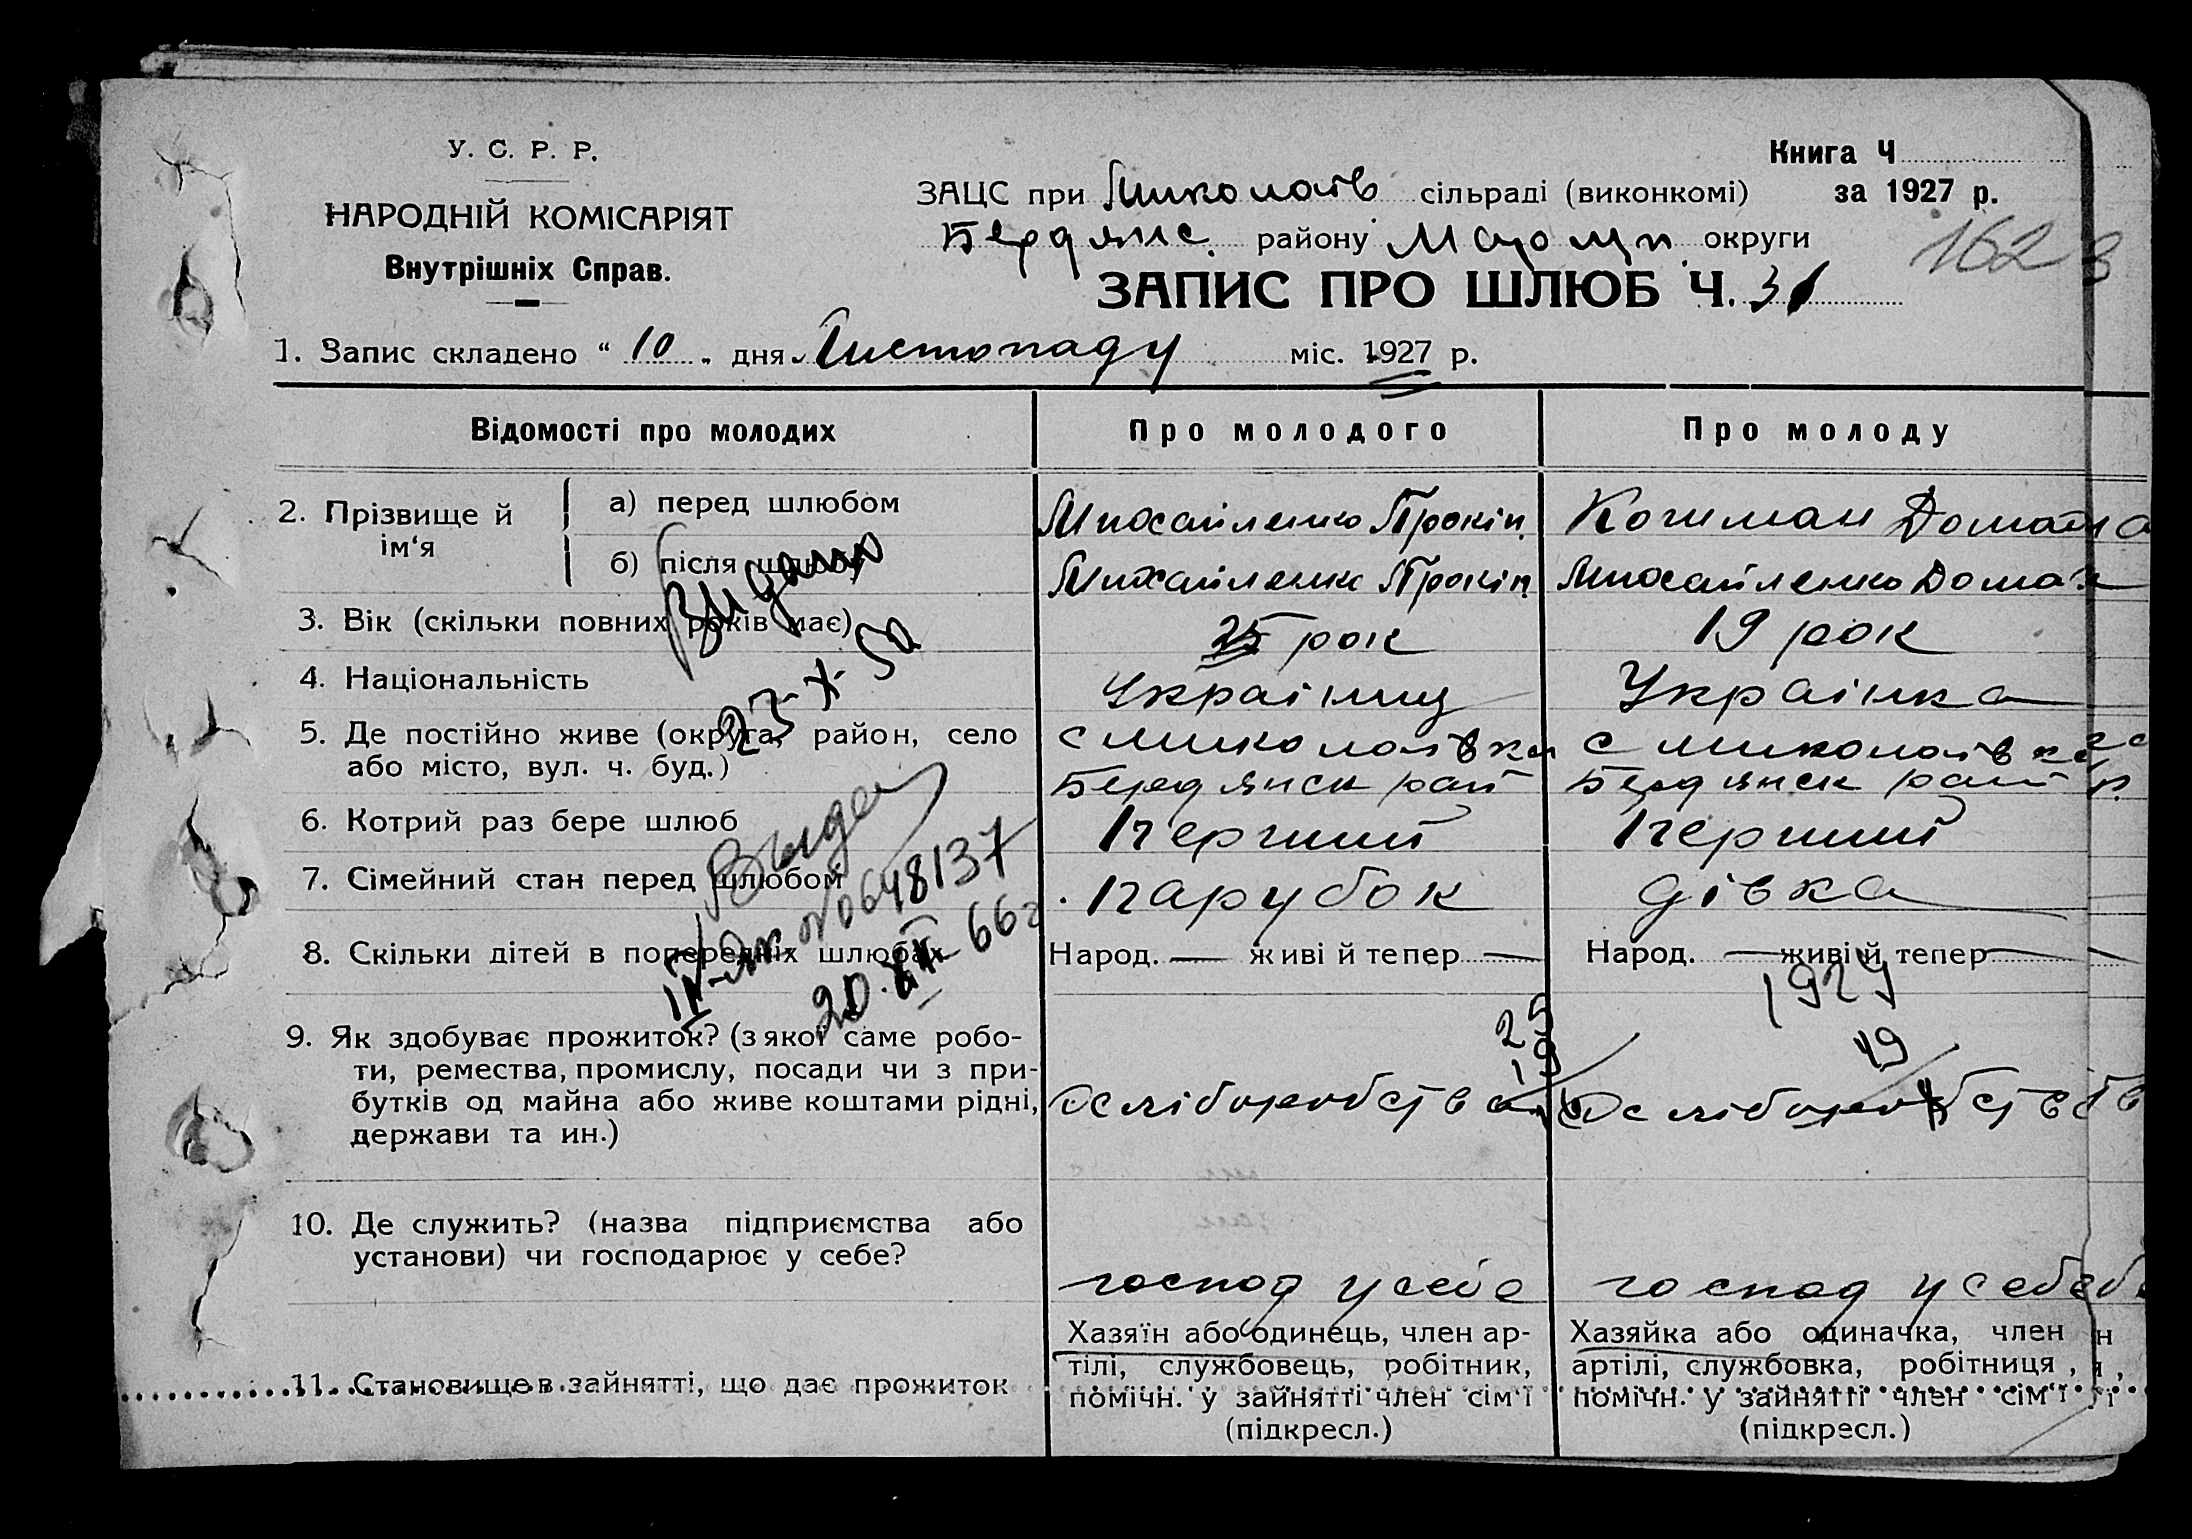 У. С. Р. Р.
НАРОДНІЙ КОМІСАРІЯТ
Внутрішніх Справ.
Книга Ч
ЗАЦС при Миколаїв сільраді (виконкомі) за 1927 р.
Бердянс. району округи
162
ЗАПИС ПРО ШЛЮБ Ч. 31
1. Запис складено “ 10 „ дня Листопаду міс. 1927 р.
Відомості про молодих Про молодого Про молоду
2. Прізвище й ім‘я
а) перед шлюбом Михайленко Прокіп Кочиман Домаха
б) після шлюбу Михайленко Прокіп Михайленко Домах
Видано
3. Вік (скільки повних років має) 25 рок 19 рок
23-X-50
4. Національність Українец Українка
5. Де постійно живе (округа, район, село або місто, вул. ч. буд.)
с Миколаївка Бердянск рай
с Миколаївка Бердянск рай
6. Котрий раз бере шлюб Перший Перший
7. Сімейний стан перед шлюбом Парубок дівка
№ 0648137
20.XII-66г
8. Скільки дітей в попередніх шлюбах Народ. — живі й тепер — Народ. — живі й тепер —
1927
25
19
19
9. Як здобуває прожиток? (з якої саме робо-
ти, ремества, промислу, посади чи з при-
бутків од майна або живе коштами рідні,
держави та ин.)
10. Де служить? (назва підприємства або
установи) чи господарює у себе?
господ у себе господ у себе
11. Становище в зайнятті, що дає прожиток
Хазяїн або одинець, член ар-
тілі, службовець, робітник,
помічн. у зайнятті член сім‘ї
(підкресл.)
Хазяйка або одиначка, член
артілі, службовка, робітниця,
помічн. у зайнятті член сім‘ї
(підкресл.)